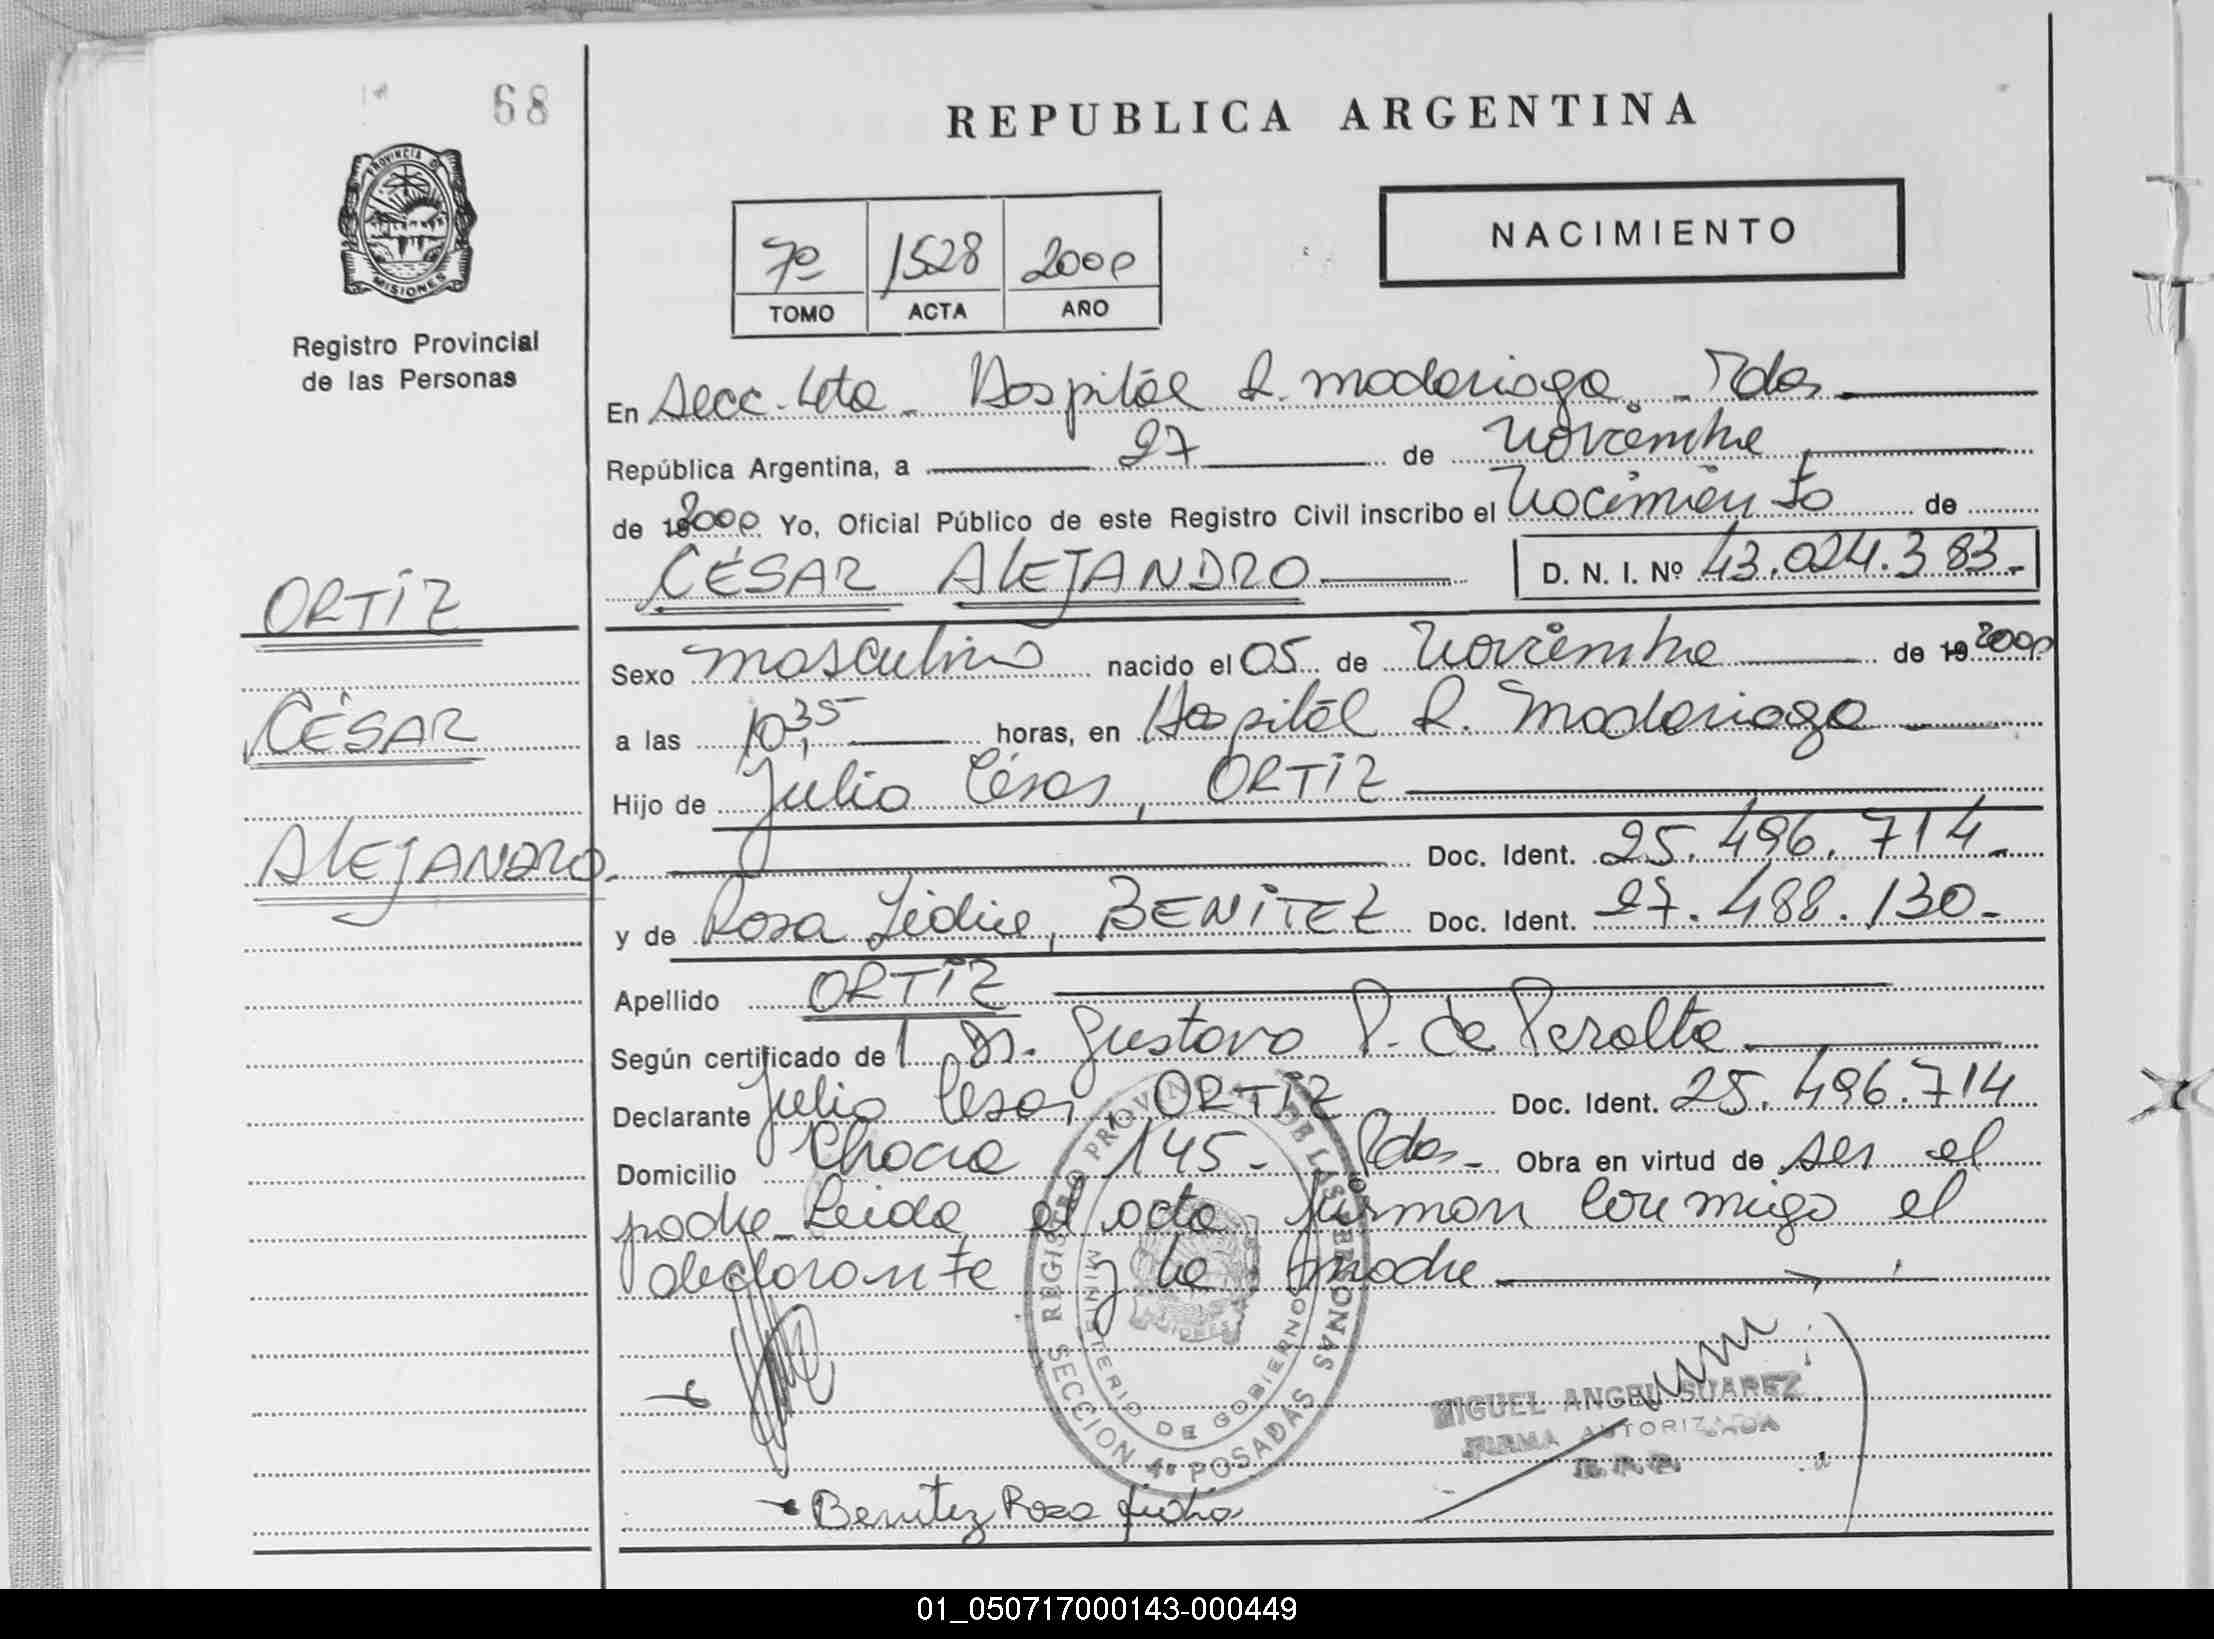 68
REPUBLICA ARGENTINA
PROVINCIA DE
MISIONES
Registro Provincial
de las Personas
7º 1528 2000
TOMO ACTA AÑO
NACIMIENTO
En Secc. 4ta - Hospital R. Madariaga - Pdas
República Argentina, a 27 de Noviembre
de 19 2000 Yo, Oficial Público de este Registro Civil inscribo el Nacimiento de
CÉSAR ALEJANDRO D. N. I. Nº 43.024.383.-
ORTIZ
CÉSAR
ALEJANDRO.
Sexo masculino nacido el 05 de Noviembre de 19 2000
a las 10,35 horas, en Hospital R. Madariaga
Hijo de Julio César, ORTIZ
Doc. Ident. 25.496.714.-
y de Rosa, BENITEZ Doc. Ident. 27.488.130.-
Apellido ORTIZ
Según certificado del Dr. Gustavo P. de Peralta
Declarante Julio Cesar, ORTIZ Doc. Ident. 25.496.714
Domicilio 145 - Pdas - Obra en virtud de ser el
padre - Leida el acta firman conmigo el
declarante y la madre
REGISTRO PROVINCIAL DE LAS PERSONAS
MINISTERIO DE GOBIERNO
SECCION 4ª POSADAS
MIGUEL ANGEL SUAREZ
FIRMA AUTORIZADA
Benitez Rosa
01_050717000143-000449